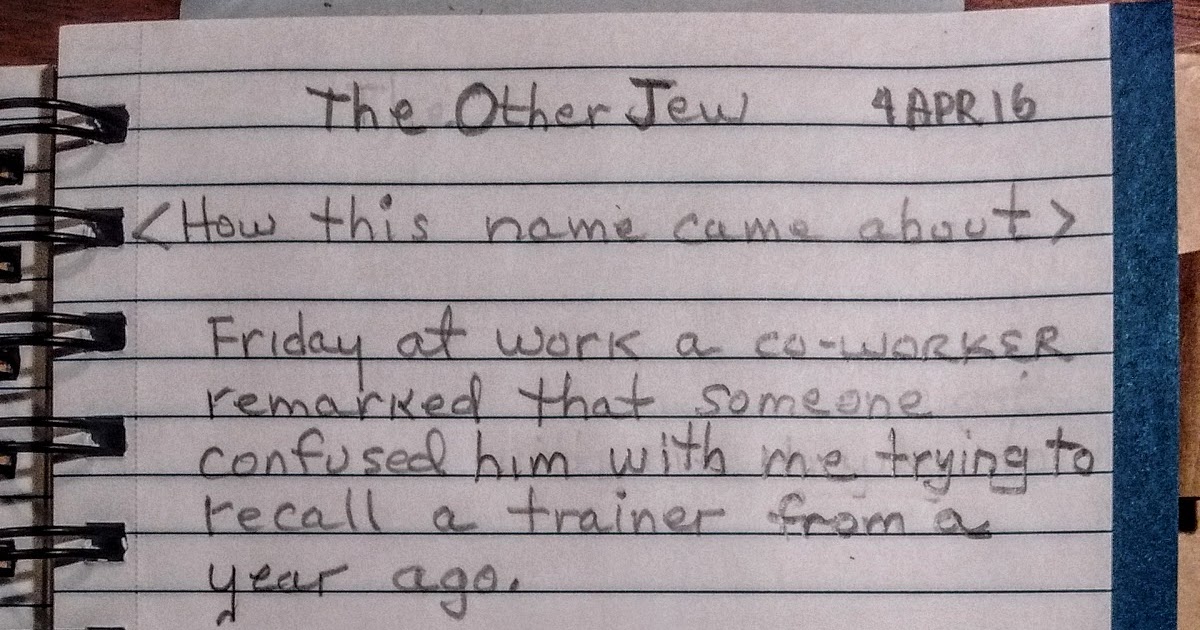 The Other Jew 4 APR 16
<How this name came about>
Friday at work a co-worker
remarked that someone
confused him with me trying to
recall a trainer from a
year ago.